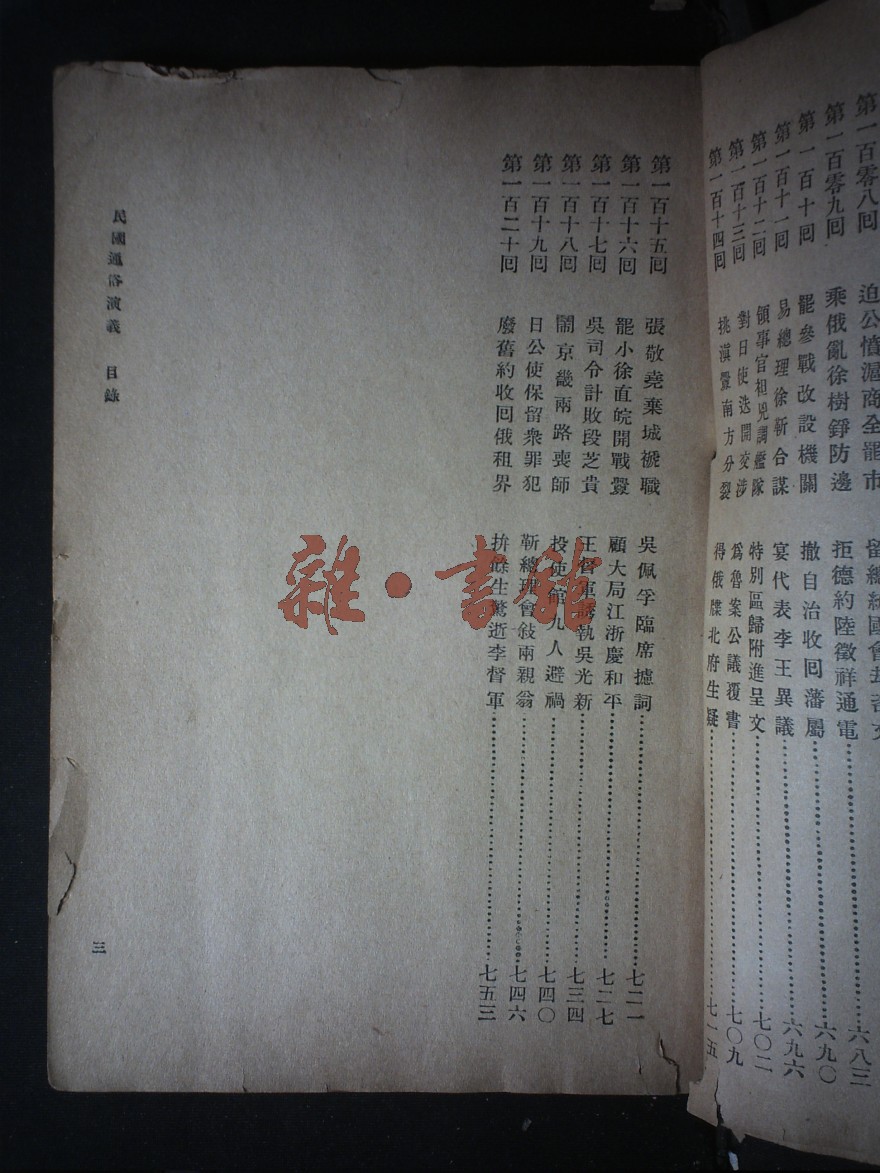 第一百零八回 迫公憤滬商全罷市 留總統國會却咨文 六八三
第一百零九回 乘俄亂徐樹錚防邊 拒德約陸徵祥通電 六九〇
第一百十回 罷參戰改設機關 撤自治收回藩屬 六九六
第一百十一回 易總理徐靳合謀 宴代表李王異議
第一百十二回 領事官相兇調艦隊 特別區歸附進呈文 七〇二
第一百十三回 對日使迭開交涉 爲魯案公議覆書 七〇九
第一百十四回 挑滇釁南方分裂 得俄牒北府生疑 七一五
第一百十五回 張敬堯棄城褫職 吳佩孚臨席摅詞 七二一
第一百十六回 罷小徐直皖開戰釁 顧大局江浙慶和平 七二七
第一百十七回 吳司令計敗段芝貴 王督軍誘執吳光新 七三四
第一百十八回 鬧京畿兩路喪師 投使館九人避禍 七四〇
第一百十九回 日公使保留衆罪犯 靳總理會敍兩親翁 七四六
第一百二十回 廢舊約收回俄租界 拚餘生驚逝李督軍 七五三
民國通俗演義 目錄
三
雜·書館